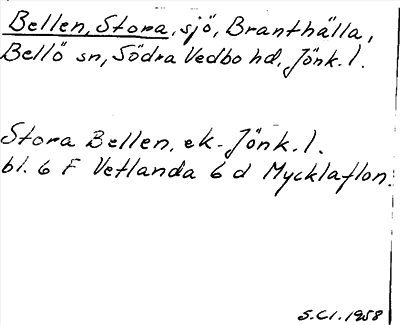 Bellen, Stora, sjö, Branthälla,
Bellö sn, Södra Vedbo hd, Jönk. l.
Stora Bellen. ek. Jönk. l.
bl. 6 F Vetlanda 6 d Mycklaflon.
S.Cl. 1958